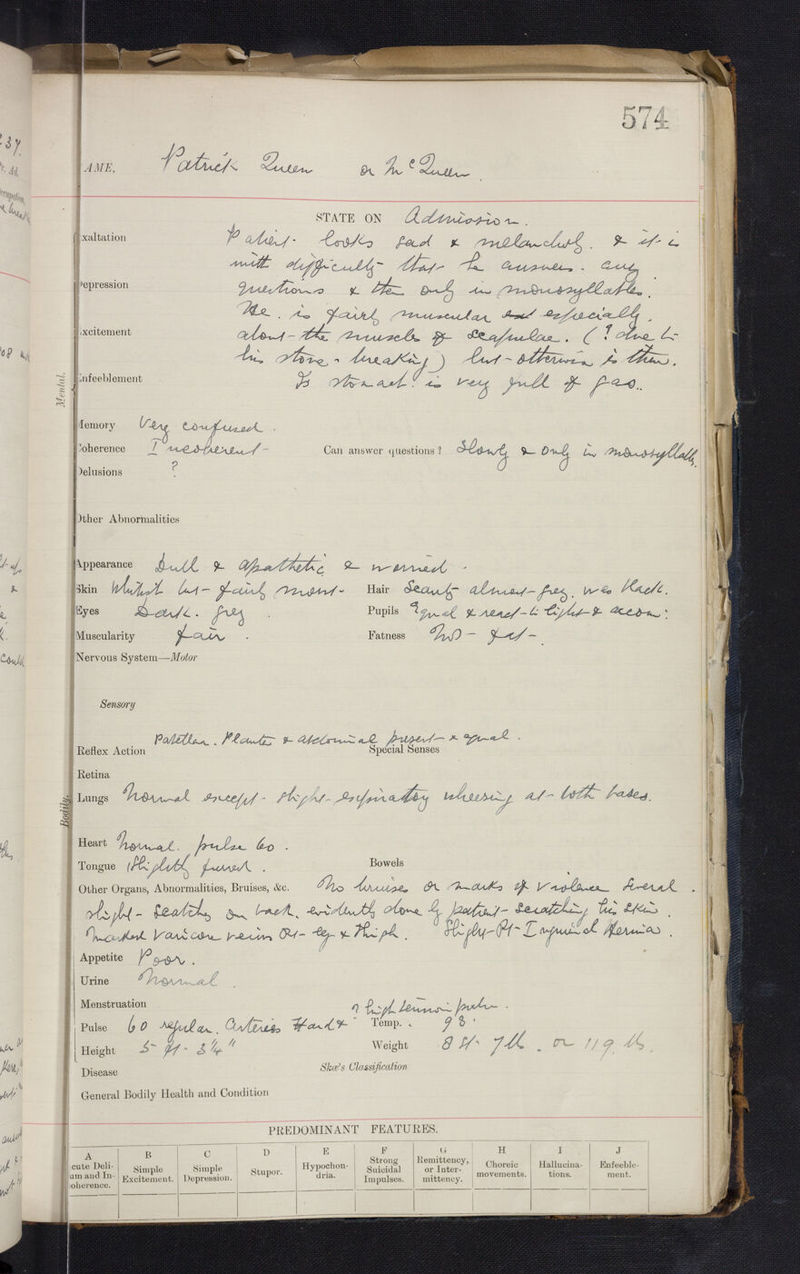 574
AME. Patrick Queen or McQueen.
STATE ON Admission.
xaltation Patient looks sad & melancholy. & it is
with difficulty that he answers any
epression questions & then only in monosyllables.
He is fairly muscular and especially
xcitement about the muscles of scapulae. (? due to
his stone-breaking) but otherwise is thin.
nfeeblement stomach is very full of gas.
Mental.
emory Very confused.
oherence Incoherent Can answer questions? Slowly & only in monosyllables.
elusions ?
ther Abnormalities
Appearance Dull & apathetic & worried.
Skin but fairly moist Hair Scanty almost grey. was black.
Eyes Dark grey. Pupils Equal & react to light & accom:
Muscularity fair. Fatness Not fat
Nervous System—Motor
Sensory
Patellar. Plantar & abdominal present & equal.
Reflex Action Special Senses
Retina
Bodily.
Lungs Normal except slight expiratory wheezing at both bases.
Heart Normal. pulse 60.
Tongue Slightly furred. Bowels
Other Organs, Abnormalities, Bruises, &c. No bruises or marks of violence Several
slight scratches on back, evidently done by patient scratching his skin.
Marked varicose veins Rt leg & thigh. Slight Rt Inguinal Hernia.
Appetite Poor.
Urine Normal.
Menstruation ? high tension pulse.
Pulse 60 regular. Arteries Hard & Temp. 98.
Height 5 ft 3¼" Weight 8 St 7 lb. or 119 lbs.
Disease Skæ's Classification
General Bodily Health and Condition
PREDOMINANT FEATURES.
A B C D E F G H I J
cute Deli-um and In-oherence. Simple Excitement. Simple Depression. Stupor. Hypochon-dria. Strong Suicidal Impulses. Remittency, or Inter-mittency. Choreic movements. Hallucina-tions. Enfeeble-ment.